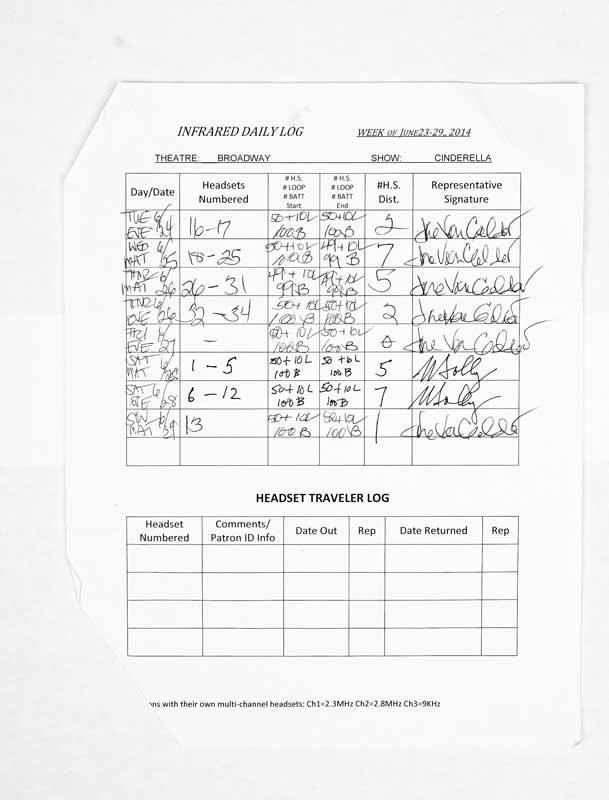 INFRARED DAILY LOG WEEK OF JUNE 23-29, 2014
THEATRE: BROADWAY SHOW: CINDERELLA
Day/Date Headsets Numbered # H.S. # LOOP # BATT Start # H.S. # LOOP # BATT End #H.S. Dist. Representative Signature
TUE 6/24 EVE 16-17 50+10L 100B 50+10L 100B 2
WED 6/25 MAT 18-25 50+10L 100B 49+10L 99B 7
MAT 26 26-31 49+10L 99B 49+10L 99B 5
EVE 26 32-34 50+10L 100B 50+10L 100B 2
FRI 6/27 EVE - 50+10L 100B 50+10L 100B 0
SAT 6/28 MAT 1-5 50+10L 100B 50+10L 100B 5
SAT 6/28 EVE 6-12 50+10L 100B 50+10L 100B 7
SUN 6/29 MAT 13 50+10L 100B 50+10L 100B 1
HEADSET TRAVELER LOG
Headset Numbered Comments/ Patron ID Info Date Out Rep Date Returned Rep
ns with their own multi-channel headsets: Ch1=2.3MHz Ch2=2.8MHz Ch3=9KHz